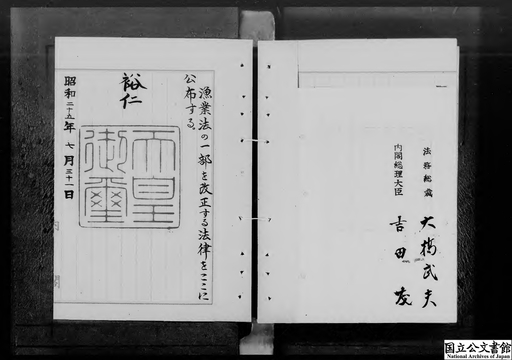 漁業法の一部を改正する法律をここに
公布する。
裕仁
天皇
御璽
昭和二十五年七月三十一日
法務総裁 大橋武夫
内閣総理大臣 吉田茂
国立公文書館
National Archives of Japan